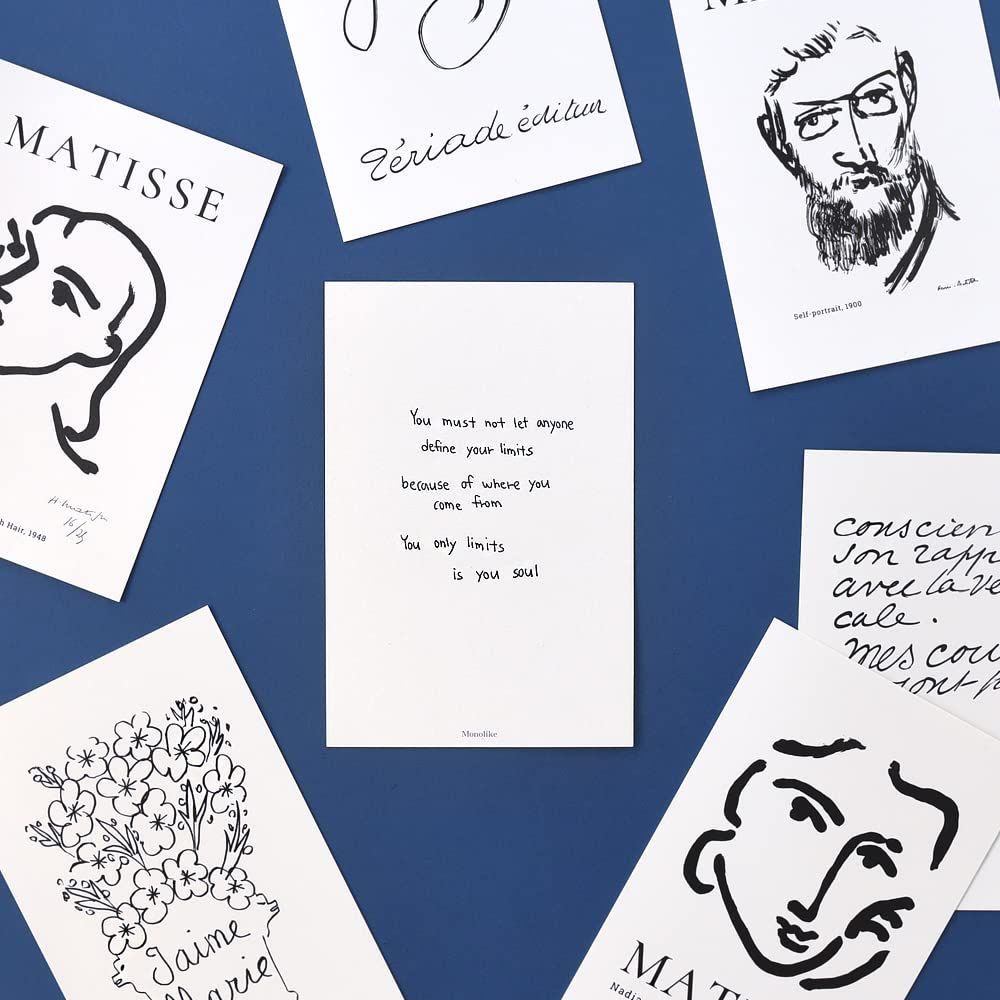 MATISSE
16/25
h Hair, 1948
Tériade éditeur
Self-portrait, 1900
You must not let anyone
define your limits
because of where you
come from
You only limits
is you soul
Monolike
conscien
son rapp
avec la ve
cale.
mes cou
sont p
J'aime
Marie
MAT
Nadia